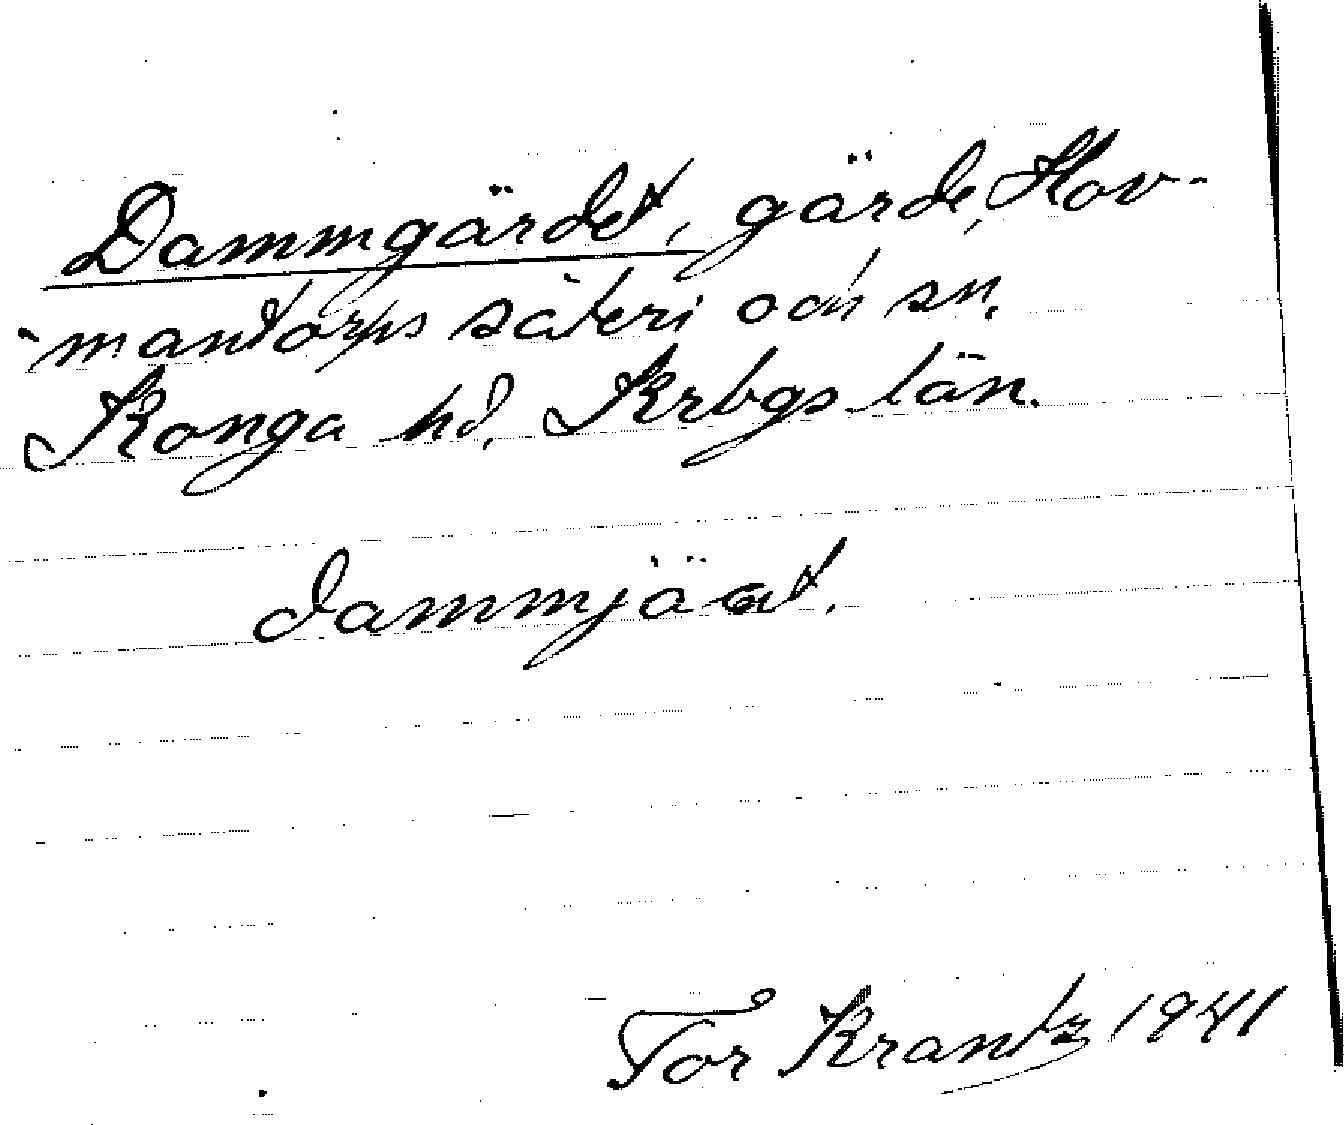 Dammgärdet, gärde, Hov-
mantorps säteri och sn.
Konga hd, Krbgs län.
dammjäat.
Tor Krantz 1941